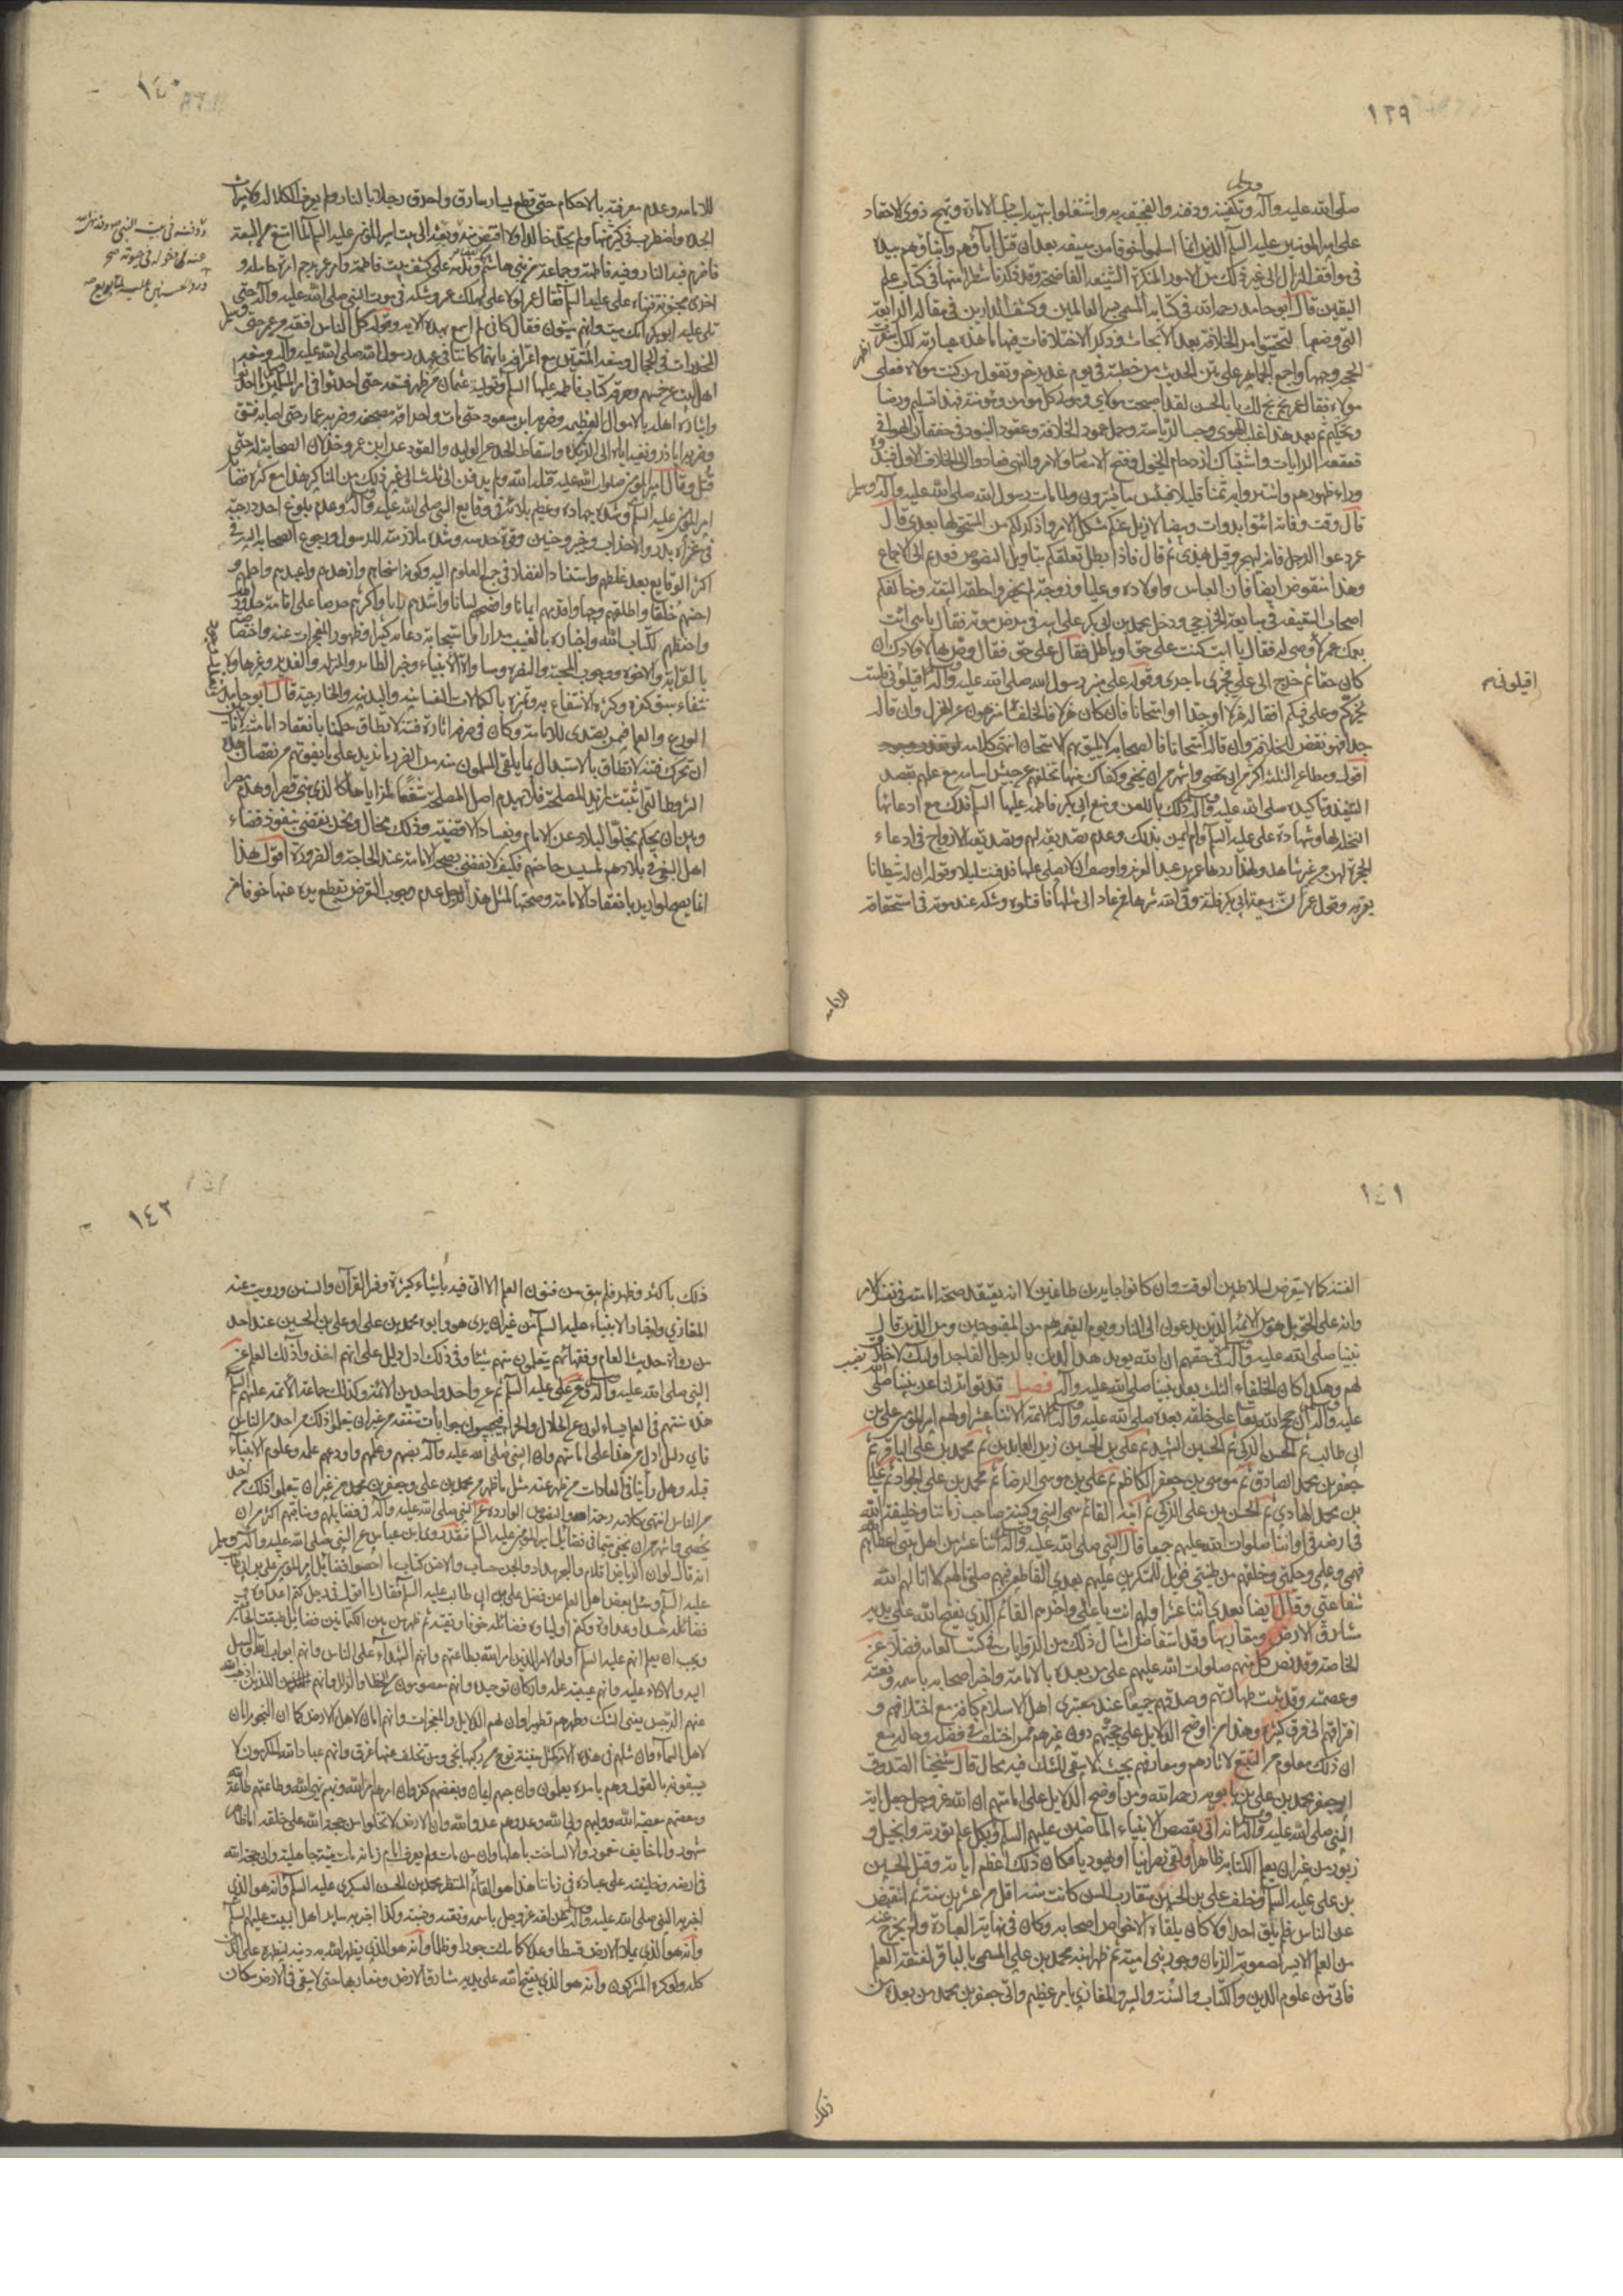 ١٣٩
صلى الله عليه وآله وتكفينه ودفنه والتفجيع به واشتغلوا بتهيئة اسباب الامارة وتهيج ذوي الاحقاد
على امير المؤمنين عليه السلم الذين انما اسلموا خوفا من سيفه بعد ان قتل اباؤهم وابناؤهم بيده
في مواقف النزال الى غير ذلك من الامور المنكرة الشنيعة الفاضحة وقد ذكرنا شطرا منها في كتاب علم
اليقين قال ابو حامد رحمه الله في كتابه المسمى بسر العالمين وكشف الدارين في مقالته الرابعة
التي وضعها لتحقيق امر الخلافة بعد الابحاث وذكر الاختلافات فيها ما هذه عبارته لكن اسفرت
الحجة وجهها واجمع الجماهير على متن الحديث من خطبته في يوم غدير خم وهو يقول من كنت مولاه فعلي
مولاه فقال عمر بخ بخ لك يا ابا الحسن لقد اصبحت مولاي ومولى كل مؤمن ومؤمنة فهذا تسليم ورضا
وتحكيم ثم بعد هذا غلب الهوى وحب الرياسة وحمل عمود الخلافة وعقود البنود في خفقان الهوا في
قعقعة الرايات واشتباك ازدحام الخيول وفتح الامصار والامر والنهي فعادوا الى الخلاف الاول فنبذوه
وراء ظهورهم واشتروا به ثمنا قليلا فبئس ما يشترون ولما مات رسول الله صلى الله عليه وآله وسلم
قال وقت وفاته ائتوا بدوات وبيضاء لازيل عنكم مشكل الامر واذكر لكم من المستحق لها بعدي قال
عمر دعوا الرجل فانه ليهجر وقيل يهذي ثم قال فاذا بطل تعلقكم بتاويل النصوص فعدتم الى الاجماع
وهذا منقوض ايضا فان العباس واولاده وعليا وزوجته لم يحضروا حلقة البيعة وخالفكم
اصحاب السقيفة في مبايعة الخزرجي ودخل محمد بن ابي بكر على ابيه في مرض موته فقال يا بني ائت
بعمك عمر لاوصي له فقال يا ابت كنت على حق او باطل فقال على حق فقال وص بها لاولادك ان
كان حقا ثم خرج الى علي فجرى ما جرى وقوله على منبر رسول الله صلى الله عليه وآله اقيلوني فلست
بخيركم وعلي فيكم افقاله هزلا او جدا او امتحانا فان كان هزلا فالخلفاء منزهون عن الهزل وان قاله
جدا فهو نقض للخلافة وان قاله امتحانا فالصحابة لا يليق بهم الامتحان انتهى كلامه
اقول ومطاعن الثلثة اكثر من ان تحصى واشهر من ان تخفى وكفاك منها تخلفهم عن جيش اسامة مع علمهم بقصد
التنفيذ وتاكيده صلى الله عليه وآله ذلك باللعن ومنع ابي بكر فاطمة عليها السلم فدك مع ادعائها
النحلة لها وشهادة علي عليه السلم وام ايمن بذلك وعدم تصديقه لهم وتصديقه الازواج في ادعاء
الحجرة لهن من غير شاهد ولهذا ردها عمر بن عبد العزيز واوصت ان لا يصلي عليها فدفنت ليلا وقوله ان له شيطانا
يعتريه وقول عمر ان بيعة ابي بكر فلتة وقى الله شرها فمن عاد الى مثلها فاقتلوه وشكه عند موته في استحقاقه
اقيلوني
للامامة
١٤٠
للامامة وعدم معرفته بالاحكام حتى قطع يسار سارق واحرق رجلا بالنار ولم يعرف الكلالة ولا ميراث
الجدة واضطرب في كثير منها ولم يحد خالدا ولا اقتص منه وبعثه الى بيت امير المؤمنين عليه السلم لما امتنع من البيعة
فاضرم فيه النار وفيه فاطمة وجماعة من بني هاشم وندامته على كشف بيت فاطمة وامر عمر برجم امرأة حاملة و
اخرى مجنونة فنهاه علي عليه السلم فقال عمر لولا علي لهلك عمر وشكه في موت النبي صلى الله عليه وآله حتى
تلى عليه ابو بكر انك ميت وانهم ميتون فقال كاني لم اسمع بهذه الاية وقوله كل الناس افقه من عمر حتى
المخدرات في الحجال ومنعه المتعتين مع اعترافه بانهما كانتا في عهد رسول الله صلى الله عليه وآله ومنعه
اهل البيت من خمسهم وخرقه كتاب فاطمة عليها السلم وتولية عثمان من ظهر فسقه حتى احدثوا في امر المسلمين ما احدثوا
وايثاره اهله بالاموال العظيمة وضربه ابن مسعود حتى مات واحراقه مصحفه وضربه عمار حتى اصابه فتق
وضربه ابا ذر ونفيه اياه الى الربذة واسقاط الحد عن الوليد والقود عن ابن عمر وخذلان الصحابة له حتى
قتل وقال امير المؤمنين صلوات الله عليه قتله الله ولم يدفن الى ثلث الى غير ذلك من المناكير هذا مع كثرة فضائل
امير المؤمنين عليه السلم وشدة جهاده وعظم بلائه في وقايع النبي صلى الله عليه وآله وعدم بلوغ احد درجته
في غزاة بدر والاحزاب وخيبر وحنين وقوة حدسه وشدة ملازمته للرسول ورجوع الصحابة اليه في
اكثر الوقايع بعد غلطهم واستناد الفضلاء في جميع العلوم اليه وكونه اسخاهم وازهدهم واعبدهم واحلمهم و
احسنهم خلقا واطلقهم وجها واقدمهم ايمانا وافصحهم لسانا واشدهم رايا واكثرهم حرصا على اقامة حدود الله
واحفظهم لكتاب الله واخباره بالغيب مرارا واستجابة دعائه كثيرا وظهور المعجزات عنه واختصاصه
بالقرابة والاخوة ووجوب المحبة والنصرة ومساواة الانبياء وخبر الطاير والمنزلة والغدير وغيرها
انتفاء سبق كفره وكثرة الانتفاع به وتميزه بالكمالات النفسانية والبدنية والخارجية قال ابو حامد
الورع والعلم فيمن يتصدى للامامة وكان في صرفه اثارة فتنة لا تطاق حكمنا بانعقاد امامته لانا بين
ان تحرك فتنة لا تطاق بالاستبدال فما يلقى المسلمون منه من الضرر ما يزيد على ما يفوتهم من نقصان هذه
الشروط التي اثبتت لمزيد المصلحة فلا يهدم اصل المصلحة شغفا لمزاياها كالذي يبني قصرا ويهدم مصرا
وبين ان يحكم بخلو البلاد عن الامام وبفساد الاقضية وذلك محال ونحن نقضي بنفوذ قضاء
اهل البغي في بلادهم لمسيس حاجتهم فكيف لا نقضي بصحة الامامة عند الحاجة والضرورة اقول هذا
انما يصح لو اريد بانعقاد الامامة وصحتها لمثل هذا الرجل عدم وجوب التعرض لقطع يده عنها خوفا من
١٤١
الفتنة كما لا يتعرض لسلاطين الوقت وان كانوا جابرين طاغين لا انه يعتقد صحة امامته في نفس الامر
وانه على الحق بل هو من الائمة الذين يدعون الى النار ويوم القيمة هم من المقبوحين ومن الذين قال
نبينا صلى الله عليه وآله في حقهم ان الله يؤيد هذا الدين بالرجل الفاجر اولئك لا خلاق
لهم وهكذا كان الخلفاء الثلث بعد نبينا صلى الله عليه وآله فصل قد تواتر لنا عن نبينا صلى الله
عليه وآله ان حجج الله تعالى على خلقه بعده صلى الله عليه وآله الائمة الاثنا عشر اولهم امير المؤمنين علي بن
ابي طالب ثم الحسن الزكي ثم الحسين الشهيد ثم علي بن الحسين زين العابدين ثم محمد بن علي الباقر ثم
جعفر بن محمد الصادق ثم موسى بن جعفر الكاظم ثم علي بن موسى الرضا ثم محمد بن علي الجواد ثم علي
بن محمد الهادي ثم الحسن بن علي الزكي ثم ابنه القائم سمي النبي وكنيته صاحب زماننا وخليفة الله
في ارضه في اواننا صلوات الله عليهم جميعا قال النبي صلى الله عليه وآله اثنا عشر من اهل بيتي اعطاهم الله
فهمي وعلمي وحكمتي وخلقهم من طينتي فويل للمتكبرين عليهم بعدي القاطعين فيهم صلتي ما لهم لا انالهم الله
شفاعتي وقال ايضا بعدي اثنا عشر اولهم انت يا علي واخرهم القائم الذي يفتح الله على يديه
مشارق الارض ومغاربها وقد استفاض امثال ذلك من الروايات في كتب العامة فضلا عن
الخاصة وقد نص كل منهم صلوات الله عليهم على من بعده بالامامة واخبر اصحابه باسمه ونعته
وعصمته وقد ثبت طهارتهم وصدقهم جميعا عند معتبري اهل الاسلام كافة مع اختلافهم و
افتراقهم الى فرق كثيرة وهذا من اوضح الدلايل على حجيتهم دون غيرهم ممن اختلف في فضله وحاله مع
ان ذلك معلوم من التتبع لاثارهم ومعارفهم بحيث لا يبقى للشك فيه مجال قال شيخنا الصدوق
ابو جعفر محمد بن علي بن بابويه رحمه الله ومن اوضح الدلايل على امامتهم ان الله عز وجل جعل اية
النبي صلى الله عليه وآله انه اتى بقصص الانبياء الماضين عليهم السلم وبكل علم توراة وانجيل و
زبور من غير ان يعلم الكتابة ظاهرا او لقي نصرانيا او يهوديا فكان ذلك اعظم اياته وقتل الحسين
بن علي عليه السلم وخلف علي بن الحسين متقارب السن كانت سنه اقل من عشرين سنة ثم انقبض
عن الناس فلم يلق احدا ولا كان يلقاه الا خواص اصحابه وكان في نهاية العبادة ولم يخرج عنه
من العلم الا يسير لصعوبة الزمان وجور بني امية ثم ظهر ابنه محمد بن علي المسمى بالباقر لفتقه العلم
فاتى من علوم الدين والكتاب والسنة والسير والمغازي بامر عظيم واتى جعفر بن محمد من بعده من
ذلك
١٤٢
ذلك بما كثر وظهر فلم يبق من فنون العلم الا اتى فيه باشياء كثيرة وفسر القرآن والسنن ورويت عنه
المغازي واخبار الانبياء عليهم السلم من غير ان يرى هو وابوه محمد بن علي او علي بن الحسين عند احد
من رواة حديث العامة وفقهائهم يتعلمون منهم شيئا وفي ذلك ادل دليل على انهم اخذوا ذلك العلم عن
النبي صلى الله عليه وآله ثم عن علي عليه السلم ثم عن واحد واحد من الائمة وكذلك جماعة الائمة عليهم السلم
هذه سنتهم في العلم يسألون عن الحلال والحرام فيجيبون جوابات متفقة من غير ان يتعلموا ذلك من احد من الناس
فاي دليل ادل من هذا على امامتهم وان النبي صلى الله عليه وآله نصبهم وعلمهم واودعهم علمه وعلوم الانبياء
قبله وهل رأينا في العادات من ظهر عنه مثل ما ظهر من محمد بن علي وجعفر بن محمد من غير ان يتعلموا ذلك من احد
من الناس انتهى كلامه رحمه الله والنصوص الواردة عن النبي صلى الله عليه وآله في فضايلهم ومناقبهم اكثر من ان
يحصى واشهر من ان يخفى سيما في فضائل امير المؤمنين عليه السلم فقد روى ابن عباس عن النبي صلى الله عليه وآله وسلم
انه قال لو ان الرياض اقلام والبحر مداد والجن حساب والانس كتاب ما احصوا فضائل امير المؤمنين علي بن ابي طالب
عليه السلم وسئل بعض اهل العلم عن فضل علي بن ابي طالب عليه السلم فقال ما اقول في رجل كتم اعداؤه
فضائله حسدا وعداوة وكتم اولياؤه فضائله خوفا وتقية ثم ظهر من بين الكتمانين فضائل طبقت الخافقين
ويجب ان يعلم انهم عليهم السلم اولوا الامر الذين امر الله بطاعتهم وانهم الشهداء على الناس وانهم ابواب الله والسبيل
اليه والادلاء عليه وانهم عيبة علمه واركان توحيده وانهم معصومون من الخطا والزلل وانهم الذين اذهب الله
عنهم الرجس يعني الشك وطهرهم تطهيرا وان لهم الدلايل والمعجزات وانهم امان لاهل الارض كما ان النجوم امان
لاهل السماء وان مثلهم في هذه الامة كمثل سفينة نوح من ركبها نجى ومن تخلف عنها غرق وانهم عباد الله المكرمون لا
يسبقونه بالقول وهم بامره يعملون وان حبهم ايمان وبغضهم كفر وان امرهم امر الله ونهيهم نهي الله وطاعتهم طاعة الله
ومعصيتهم معصية الله ووليهم ولي الله وعدوهم عدو الله وان الارض لا تخلوا من حجة الله على خلقه اما ظاهر
مشهور واما خايف مغمور والا لساخت باهلها وان من مات ولم يعرف امام زمانه مات ميتة جاهلية وان حجة الله
في ارضه وخليفته على عباده في زماننا هذا هو القائم المنتظر محمد بن الحسن العسكري عليه السلم وانه هو الذي
اخبر به النبي صلى الله عليه وآله عن الله عز وجل باسمه ونعته ونسبه وكذا اخبر به ساير اهل البيت عليهم السلم
وانه هو الذي يملا الارض قسطا وعدلا كما ملئت جورا وظلما وانه هو الذي يظهر الله به دينه ليظهره على الدين
كله ولو كره المشركون وانه هو الذي يفتح الله على يديه مشارق الارض ومغاربها حتى لا يبقى في الارض مكان